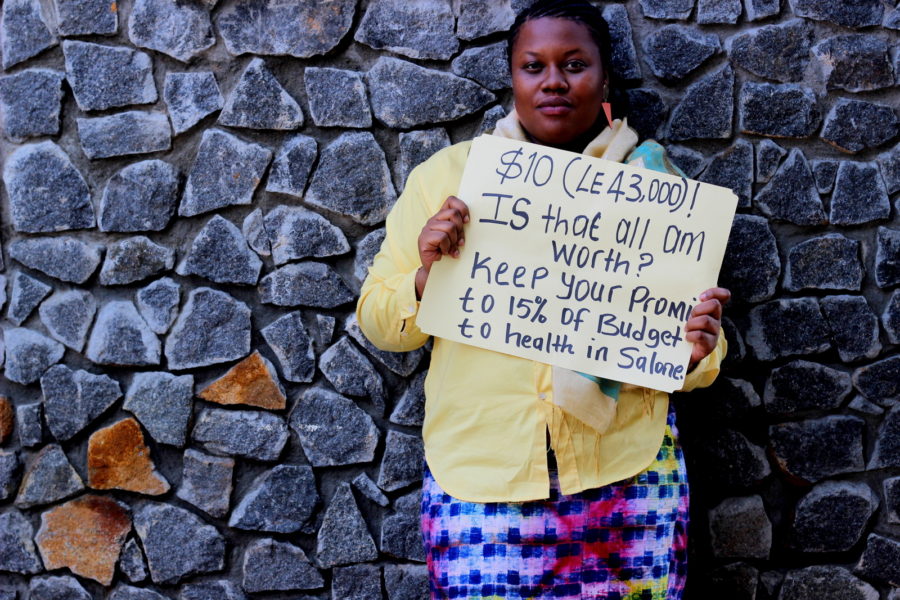 $10 (LE43,000)!
IS that all am
Worth?
Keep your Promi
to 15% of Budget
to health in Salone.